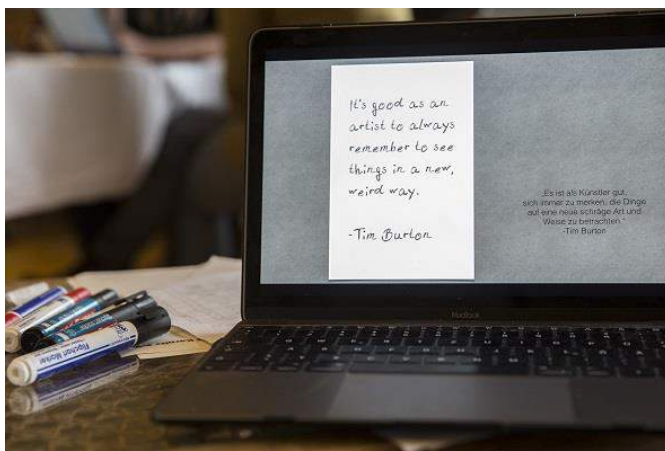 It's good as an
artist to always
remember to see
things in a new,
weird way.
-Tim Burton
„Es ist als Künstler gut,
sich immer zu merken, die Dinge
auf eine neue schräge Art und
Weise zu betrachten.“
-Tim Burton
MacBook
Flipchart Marker